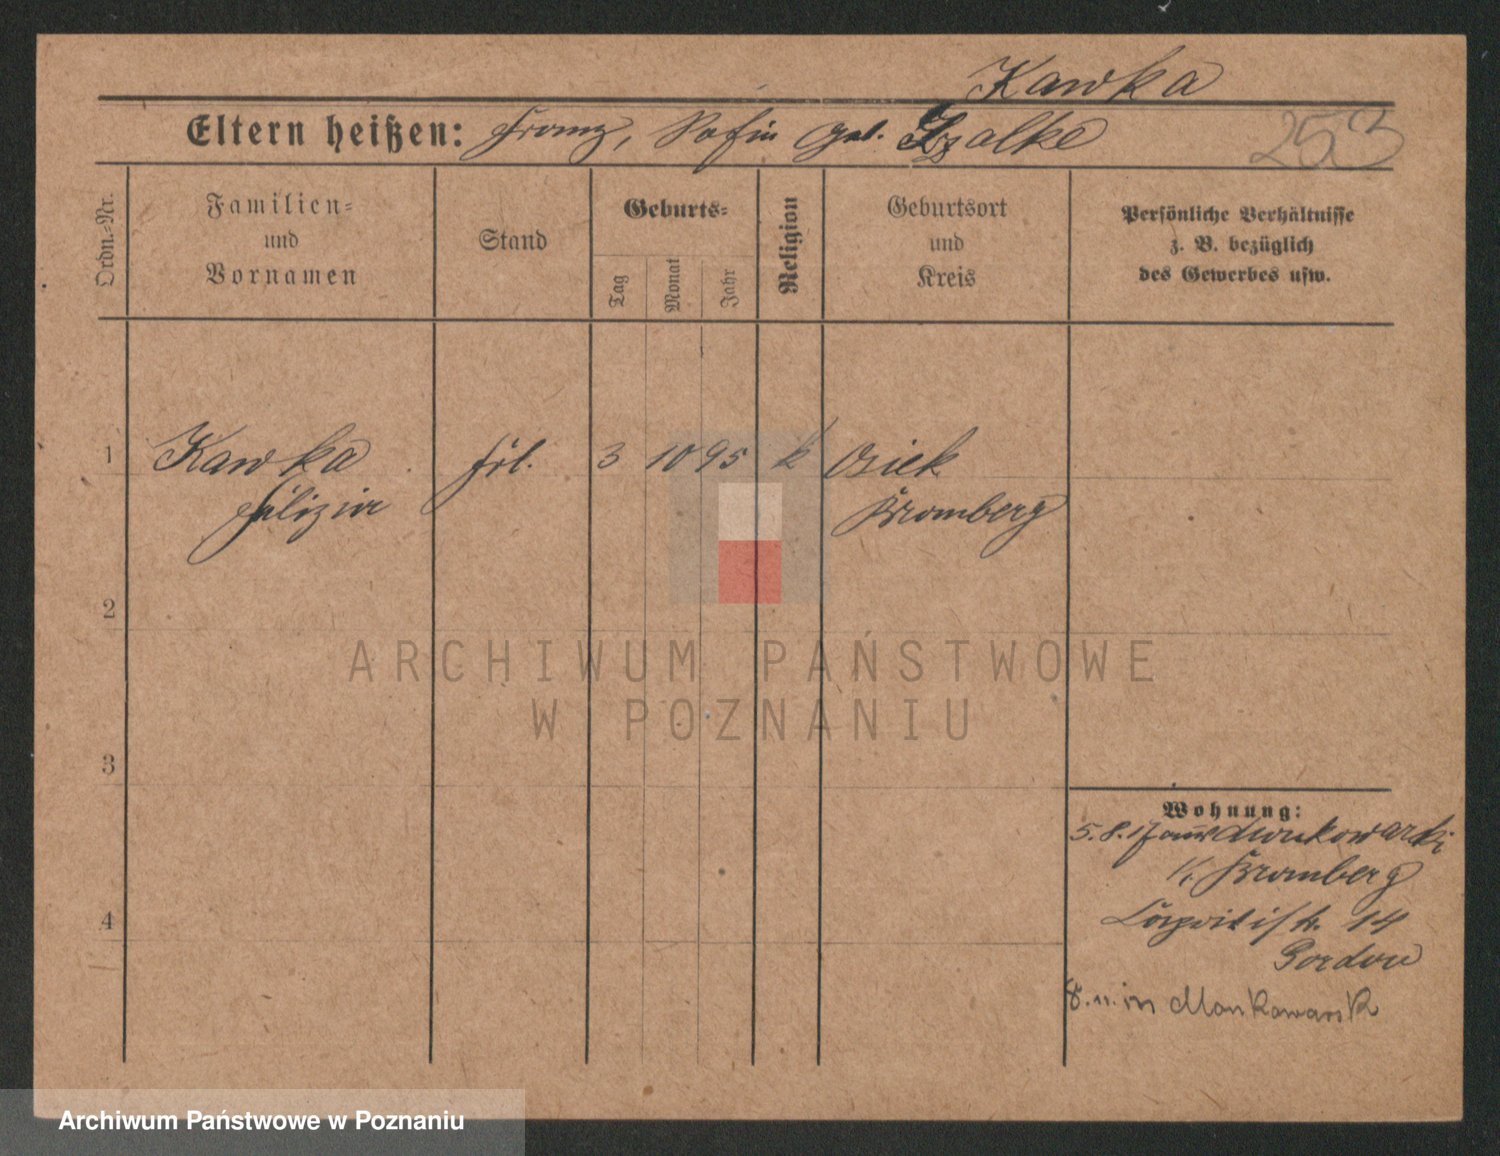 Kawka
Eltern heißen: Franz, Sofie geb.
253
Ordn.-Nr.
Familien-
und
Vornamen
Stand
Geburts-
Tag
Monat
Jahr
Religion
Geburtsort
und
Kreis
Persönliche Verhältnisse
z. B. bezüglich
des Gewerbes usw.
1 Kawka frl. 3 10 95 k Osiek
Felizia Bromberg
2
3
4
Wohnung:
5.8.17 aus Monkowarsk
K. Bromberg
14
Fordon
8.11. in Monkowarsk
ARCHIWUM PAŃSTWOWE
W POZNANIU
Archiwum Państwowe w Poznaniu